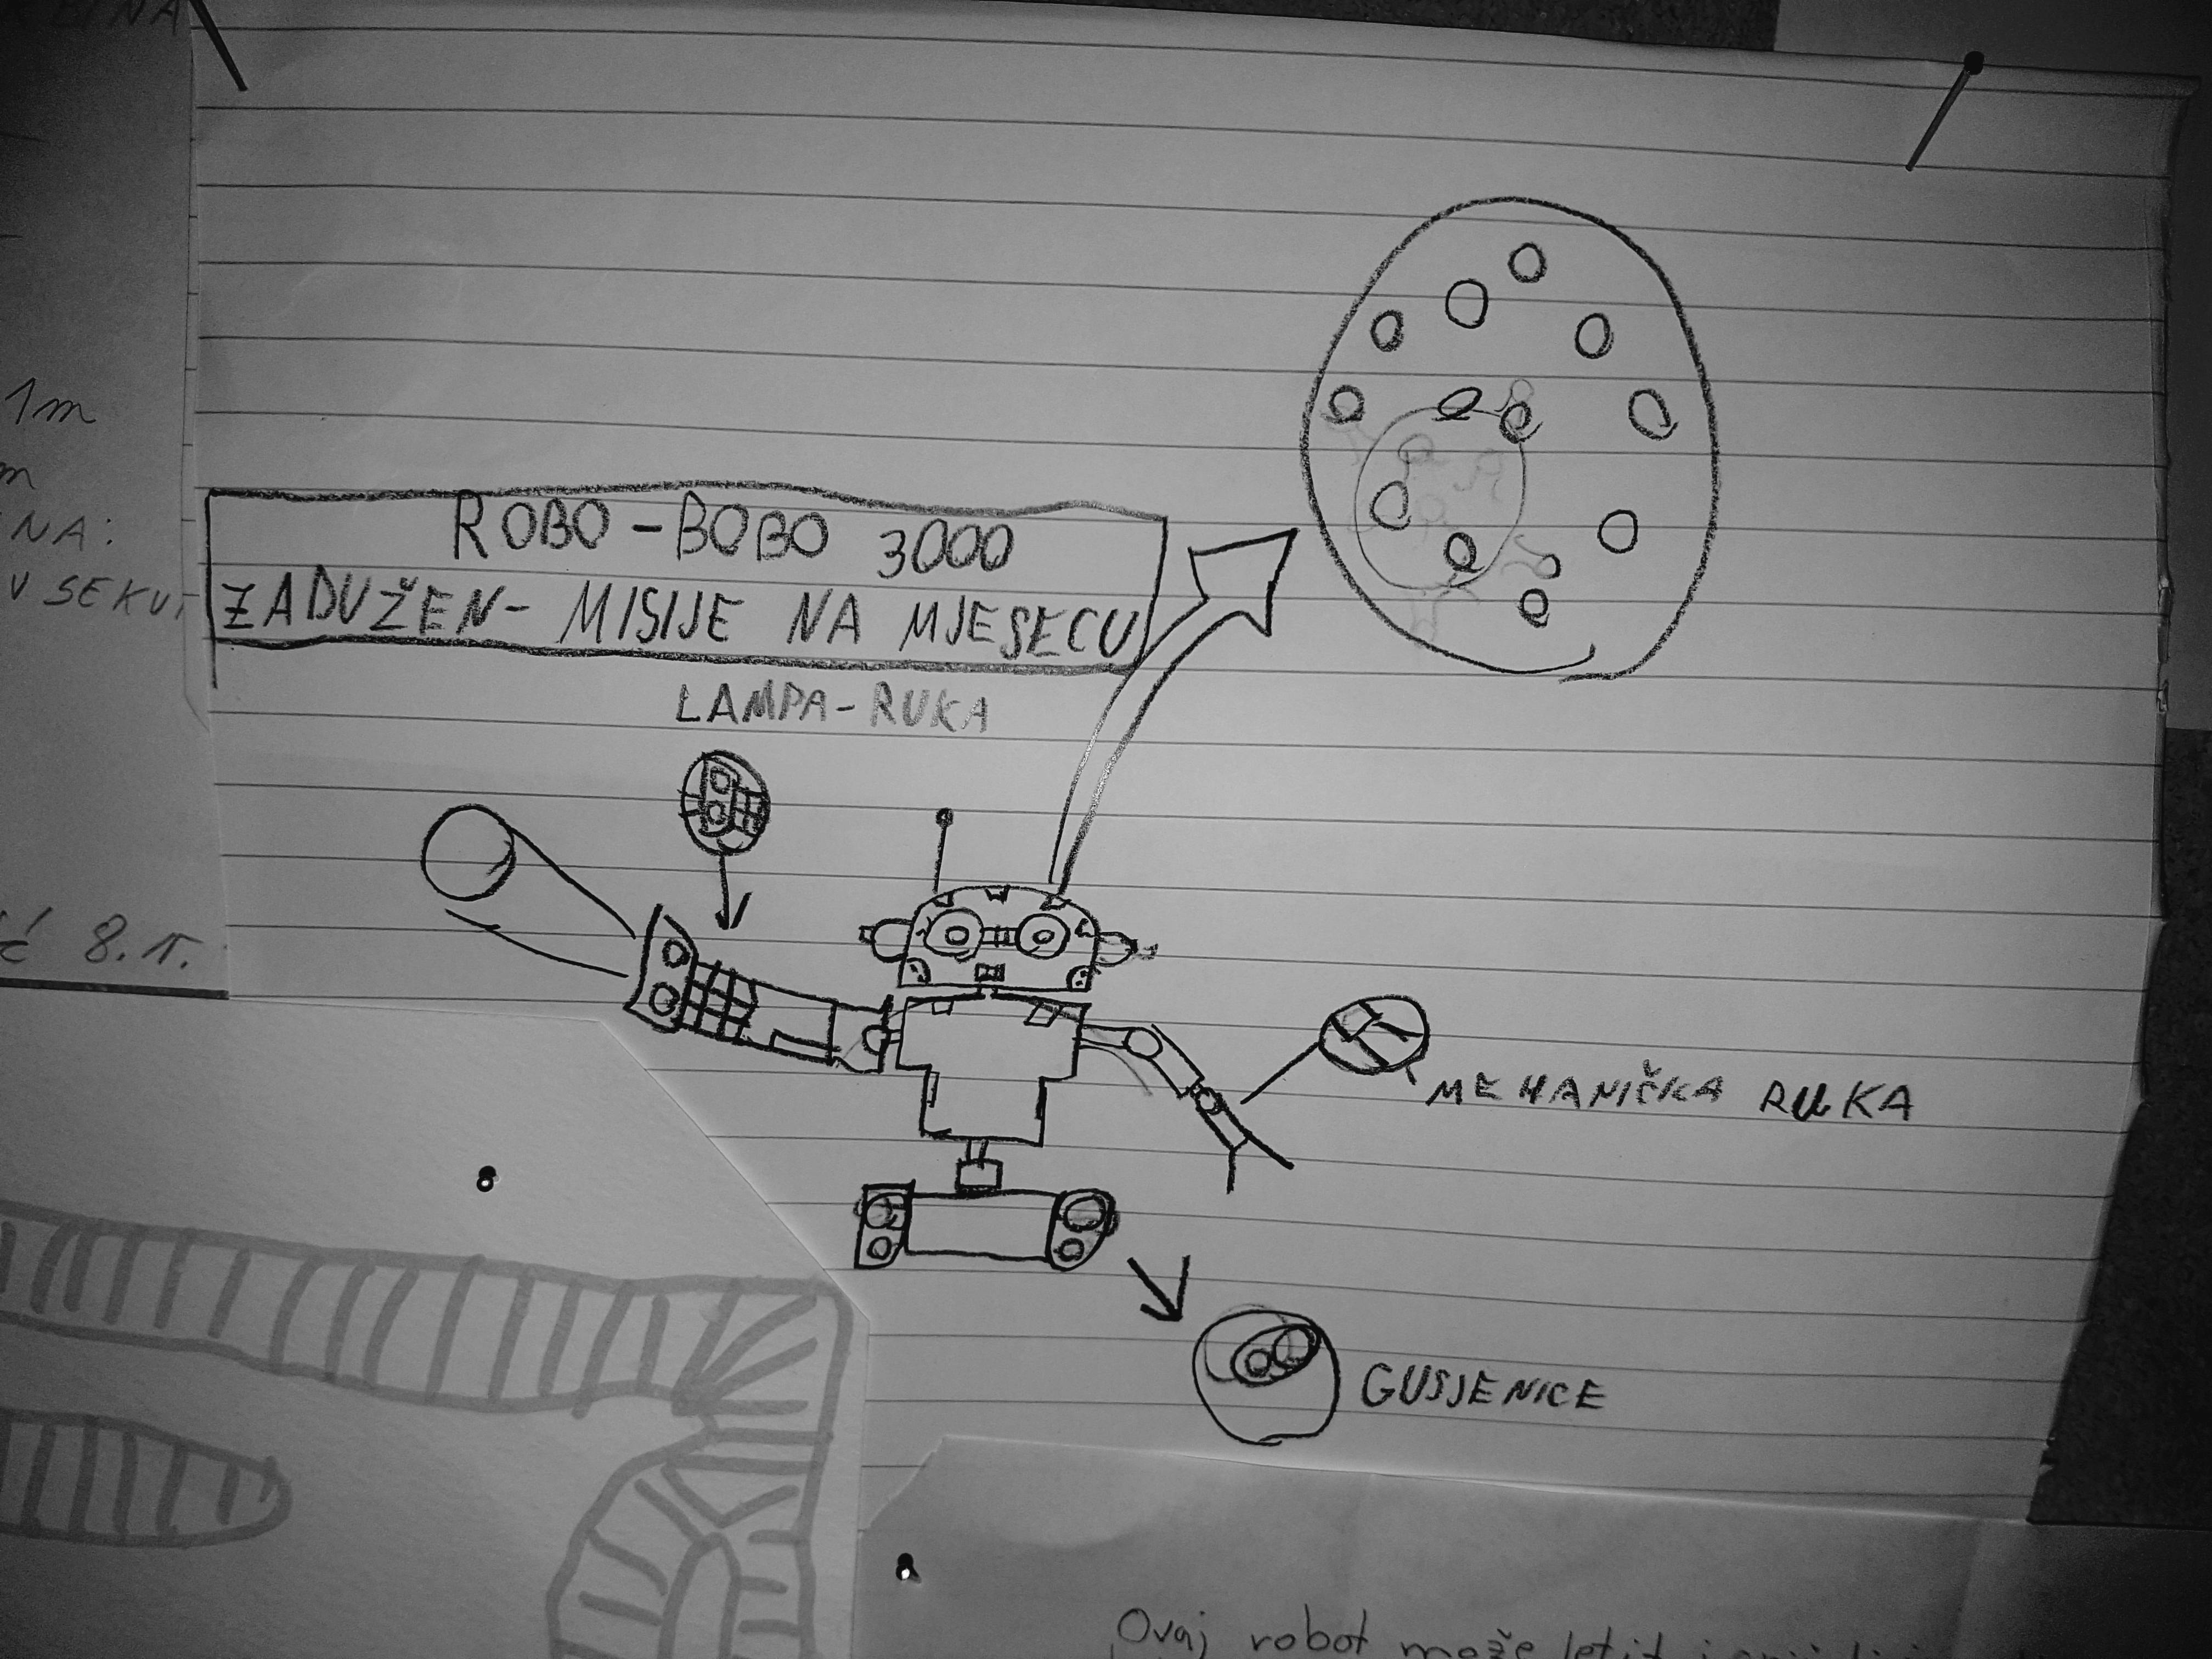 1m
NA:
V SEKU
8. r.
ROBO-BOBO 3000
ZADUŽEN- MISIJE NA MJESECU
LAMPA-RUKA
MEHANIČKA RUKA
GUSJENICE
Ovaj robot može letit i